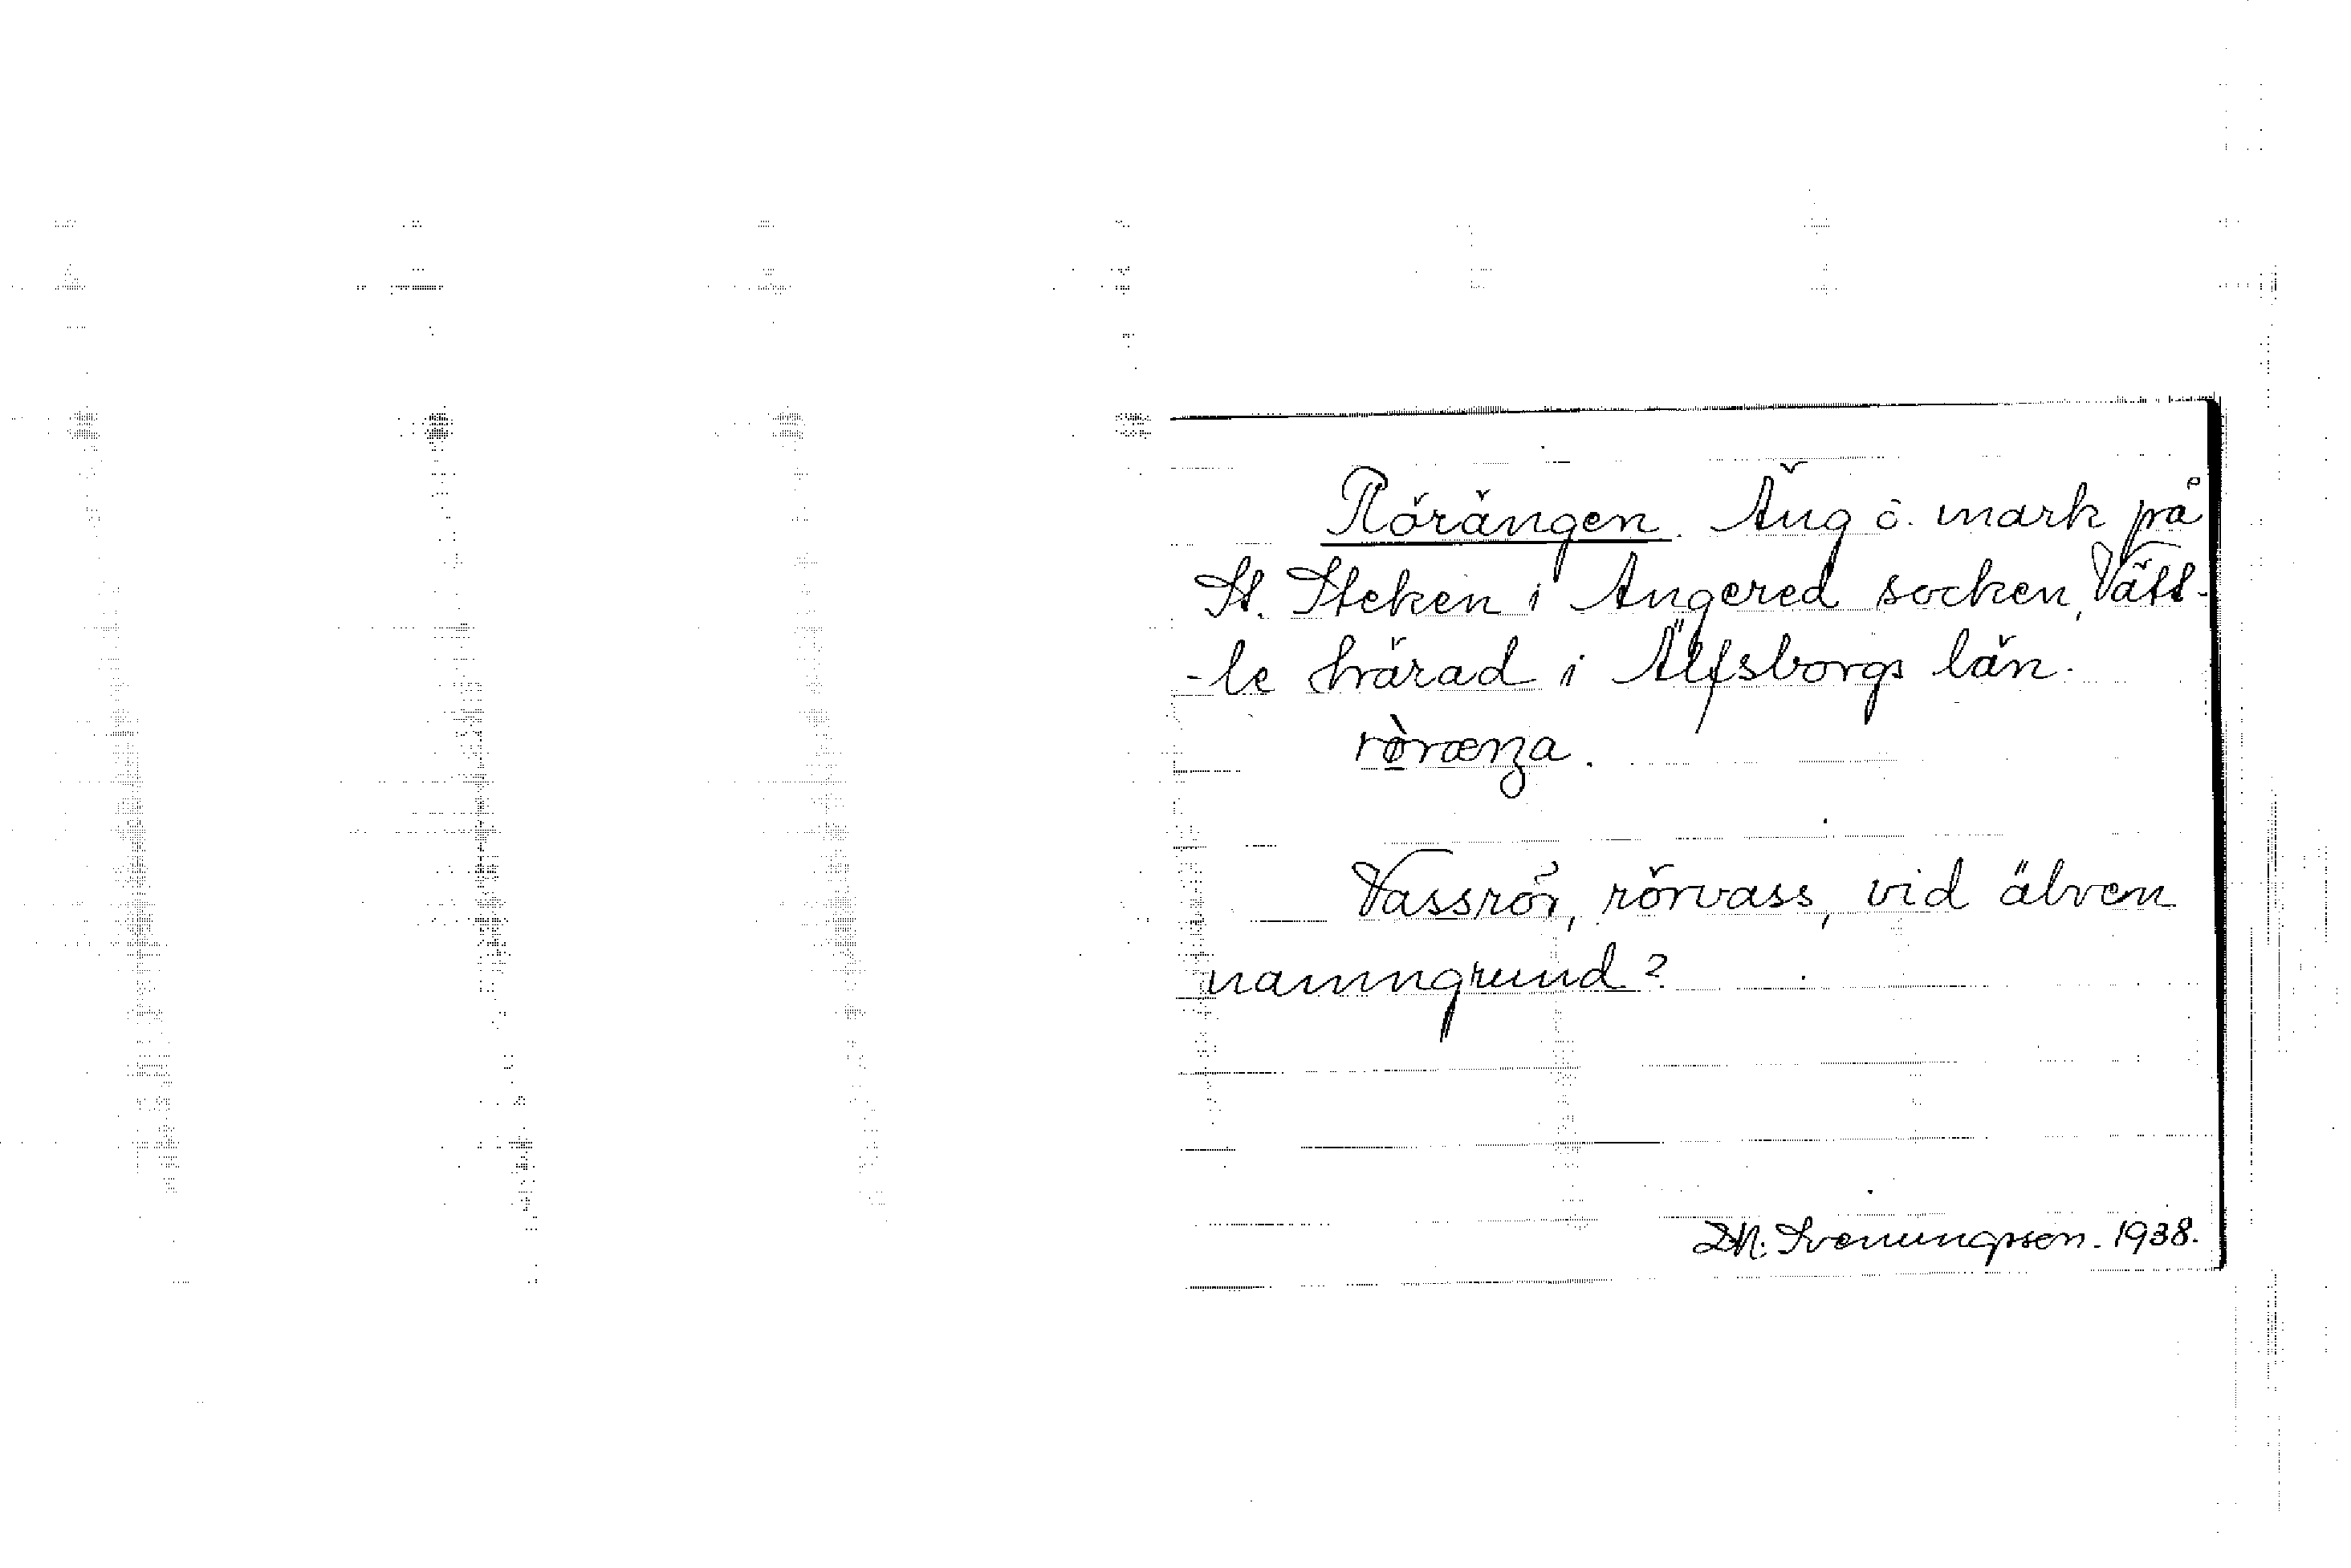 Rörängen. Äng o. mark på
St. Steken i Angered socken, Vätt-
-le härad i Älfsborgs län.
rø̀rænza.
Vassrör, rörvass, vid älven
namngrund?
Svenungsson. 1938.